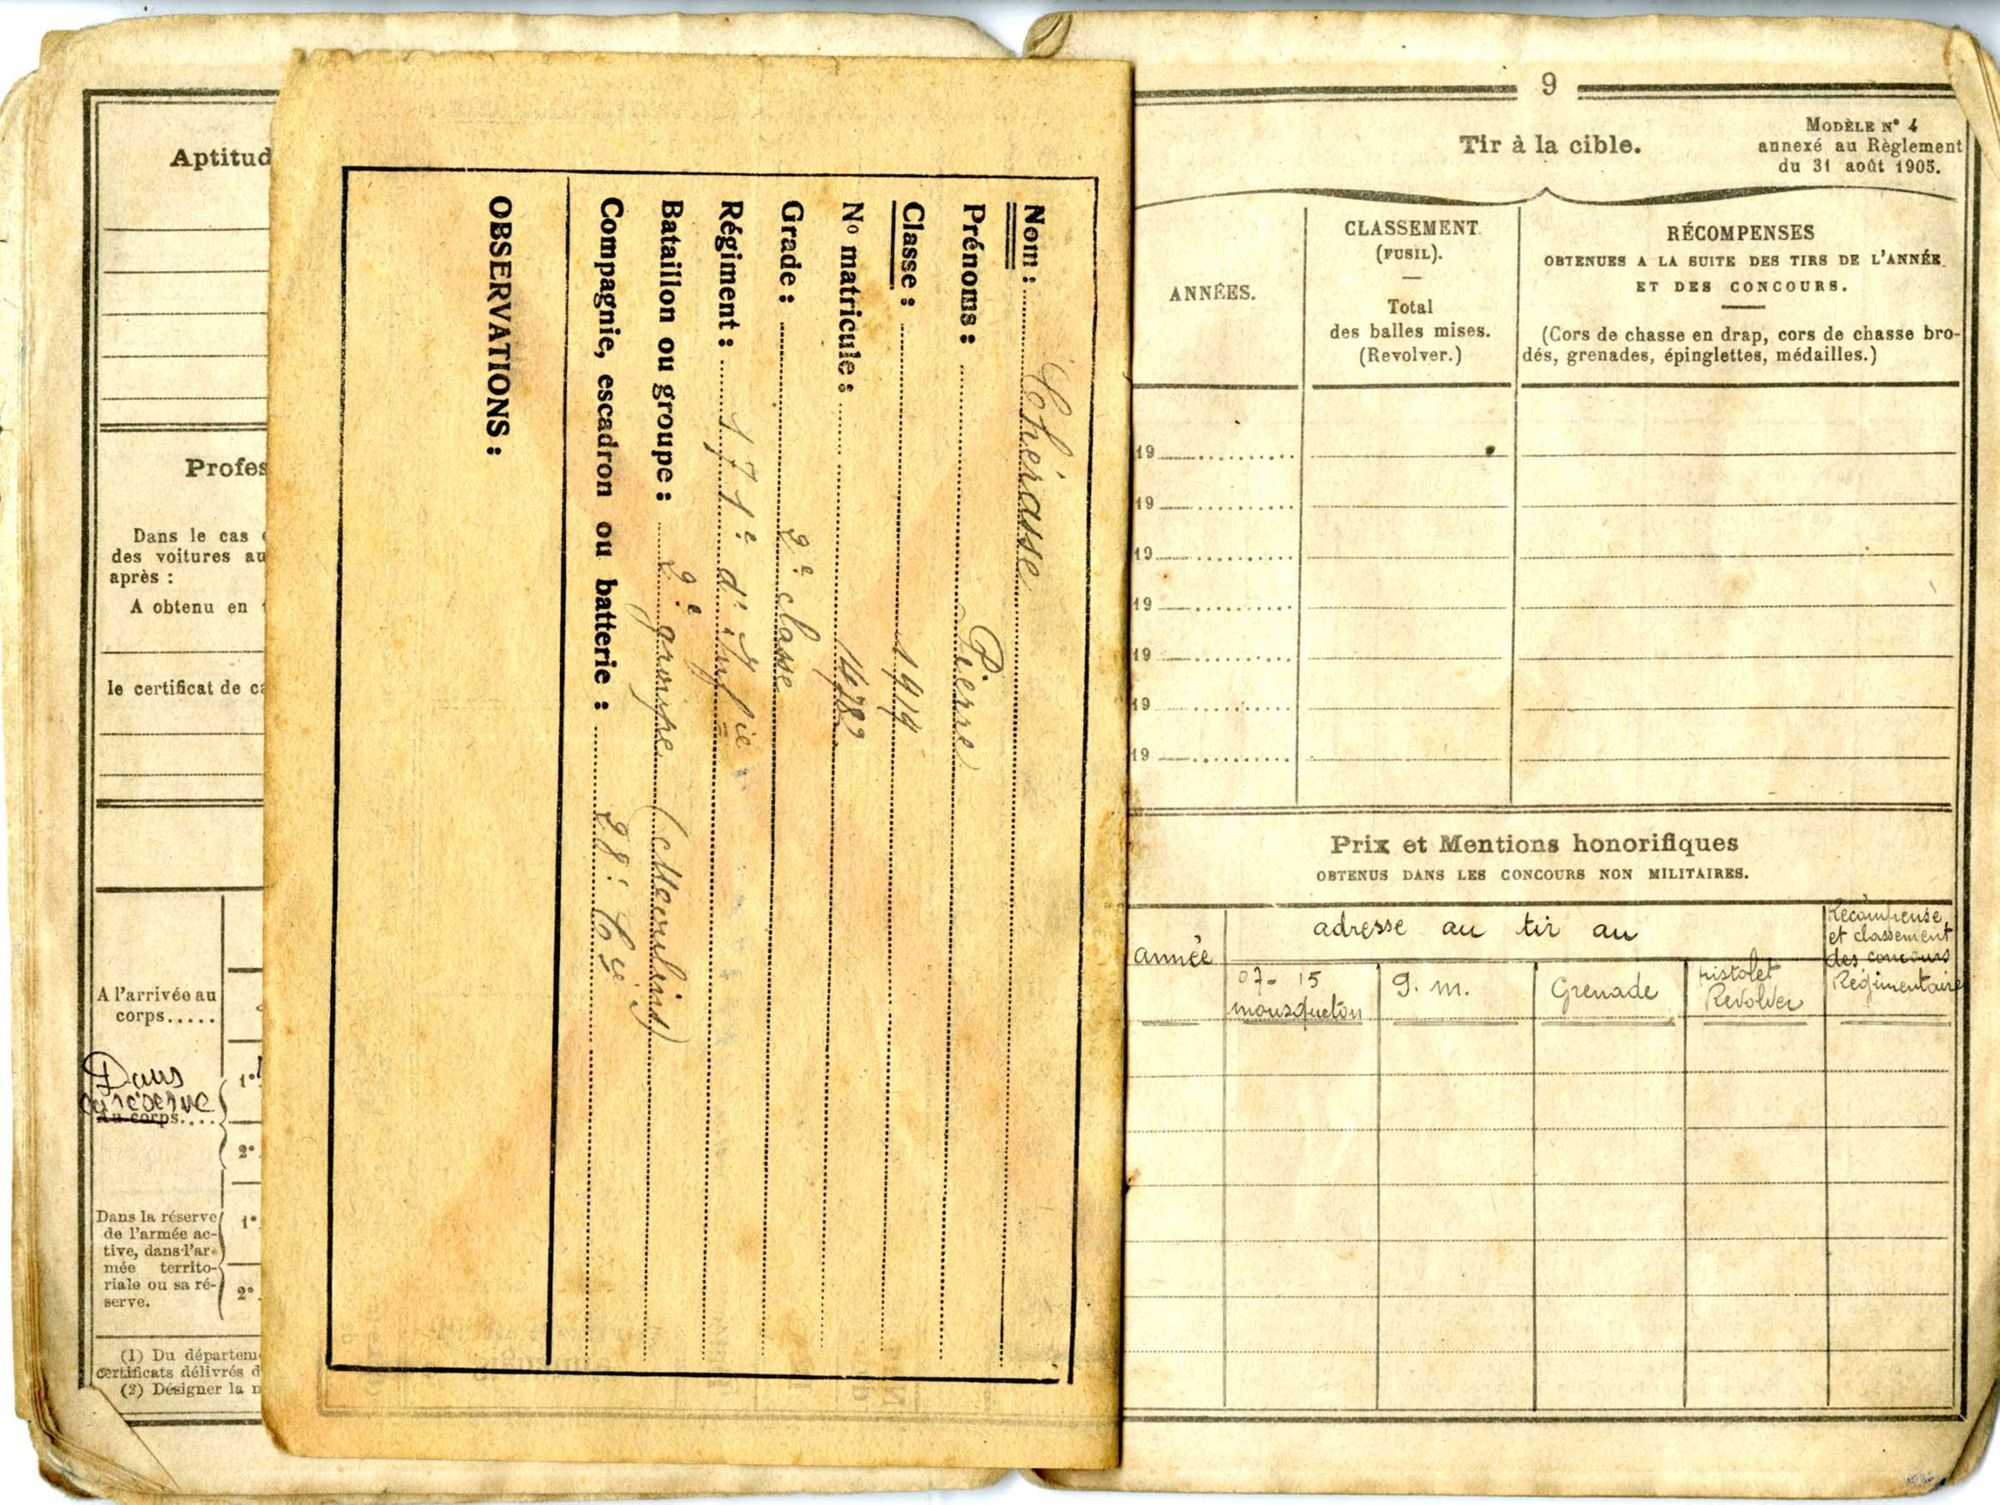 Aptitud
Profes
Dans le cas
des voitures au
après :
A obtenu en
le certificat de ca
A l'arrivée au
corps.....
Dans
la réserve
Au corps....
1°
2°
Dans la réserve
de l'armée ac-
tive, dans l'ar-
mée territo-
riale ou sa ré-
serve.
1°
2°
(1) Du départem
certificats délivrés d
(2) Désigner la n
Nom : Chérasse
Prénoms : Pierre
Classe : 1919
N° matricule : 1482
Grade : 2e classe
Régiment : 171e d'Infie
Bataillon ou groupe : 2e groupe (Moulins)
Compagnie, escadron ou batterie : 28e Cie
OBSERVATIONS :
9
Tir à la cible.
MODÈLE N° 4
annexé au Règlement
du 31 août 1905.
ANNÉES.
CLASSEMENT
(FUSIL).
Total
des balles mises.
(Revolver.)
RÉCOMPENSES
OBTENUES A LA SUITE DES TIRS DE L'ANNÉE
ET DES CONCOURS.
(Cors de chasse en drap, cors de chasse bro-
dés, grenades, épinglettes, médailles.)
19
19
19
19
19
19
19
Prix et Mentions honorifiques
OBTENUS DANS LES CONCOURS NON MILITAIRES.
année
adresse au tir au
07-15
mousqueton
g. m.
Grenade
pistolet
Revolver
Récompense
et classement
des concours
Régimentaire